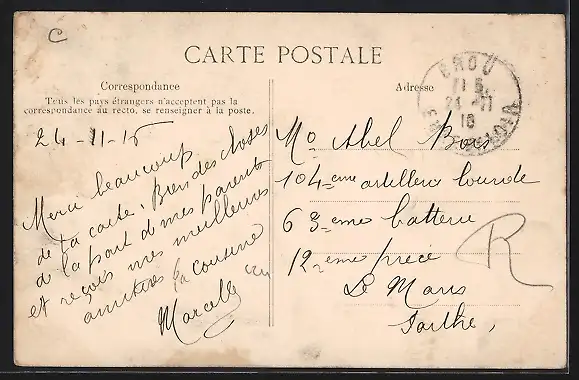 C
CARTE POSTALE
Correspondance
Tous les pays étrangers n'acceptent pas la
correspondance au recto, se renseigner à la poste.
24-11-15
Merci beaucoup
de ta carte. Bien des choses
de la part de mes parents
et reçois mes meilleures
amitiées ta cousine
Marcelle
Adresse
CROU
24 -11
Mr Abel Bois
104 eme artillerie lourde
63 eme batterie
12 eme piéce
Le Mans
Sarthe,
R